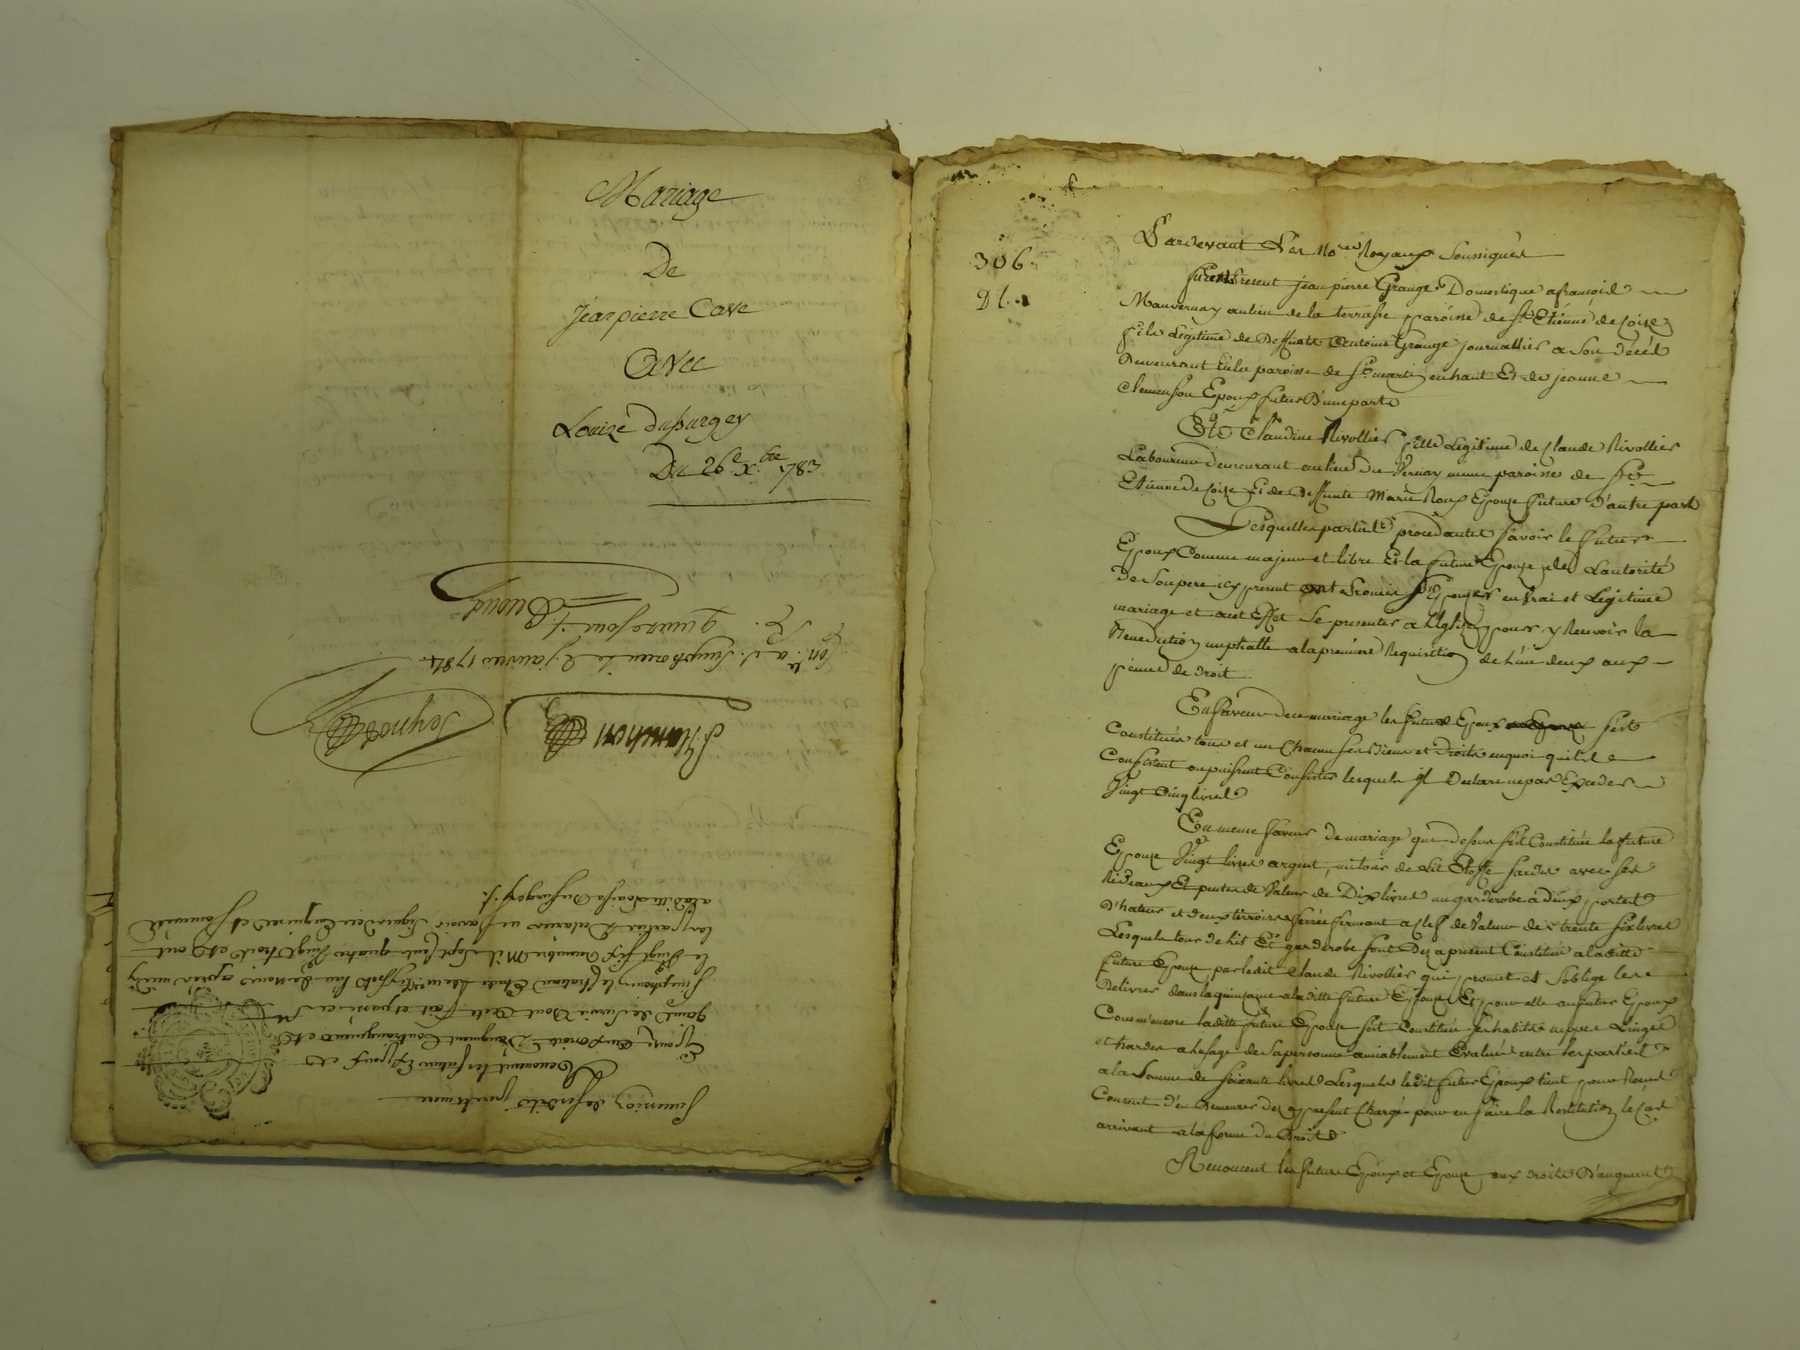 Mariage
De
Jean pierre Cave
Avec
Louise dupurgey
Du 26e Xbre 1783
Con.lé a St Simphorien le 2 janvier 1784
quinze sous
pension de ses droits
Renoncent les futurs Epoux et
Epouse aux droits D'augment Contraugment et
gaind de Survie Dont Acte fait et passé en
Simphorien le chateau Etude l'un des Nottes après midy
le vingt six decembre Mil sept cent quatre vingt trois et ont
les parties Declarées ne scavoir signer de ce Enquises et sommées
a la ditte Louise dupurgey
306
Pardevant Les No.res Royaux Soussignés
furent Present jean pierre Grange Domestique a françois
Mauvernay au lieu de la terrasse paroisse de St Etienne de Coise
fils Legitime de Deffunt Antoine Grange journallier a Son décés
Demeurant en la paroisse de St martin en haut Et de jeanne
Clemenson Epoux futur D'une part
Et Claudine Rivollier fille Legitime de Claude Rivollier
Laboureur demeurant au lieu du Vernay meme paroisse de St
Etienne de Coise Et de Deffunte Marie Roux Epouze future D'autre part
Lesquelles parties procedantes Savoir le futur
Epoux Comme majeur et libre Et la future Epouze de Lautorité
de Son pere icy present ont Promis S'Epouzer en vrai et Legitime
mariage et a cet Effet Se presenter a L'Eglise pour y Recevoir la
Benediction nuptialle a la premiere Requisition de L'un deux aux
peines de droit
En faveur de ce mariage les futurs Epoux se sont
Constitués tous et un Chacun Ses Biens et Droits en quoi qu'ils
Consistent ou puissent Consister lesquels il Declare ne pas Exceder
Vingt Cinq livres
En meme faveur de mariage que dessus s'est Constituée la future
Epouze Vingt livres argent, un tour de Lit Etoffe Sardis avec Ses
Rideaux Et pentes de Valeur de Dix livres un garderobe a deux portes
D'hateur et deux tirroirs ferrée fermant a Clef de Valeur de trente six livres
Lesquels tour de Lit Et garderobe sont Dez a present Constitués a la ditte
future Epouze par ledit Claude Rivollier qui promet et S'oblige les
Delivrer dans la quinzaine a la ditte future Epouze Et pour elle au futur Epoux
Comm'encore laditte future Epouze s'est Constituée Ses habits nippes Linges
et hardes a Lusage de Sa personne amiablement Evalués entre les parties
a la Somme de Soixante livres Lesquels le dit futur Epoux tient pour Recus
Consent d'en Demeurer dez a present Chargé pour en faire la Restitution le Cas
arrivant a la forme du Droit
Renoncent les futurs Epoux et Epouze aux droits D'augment